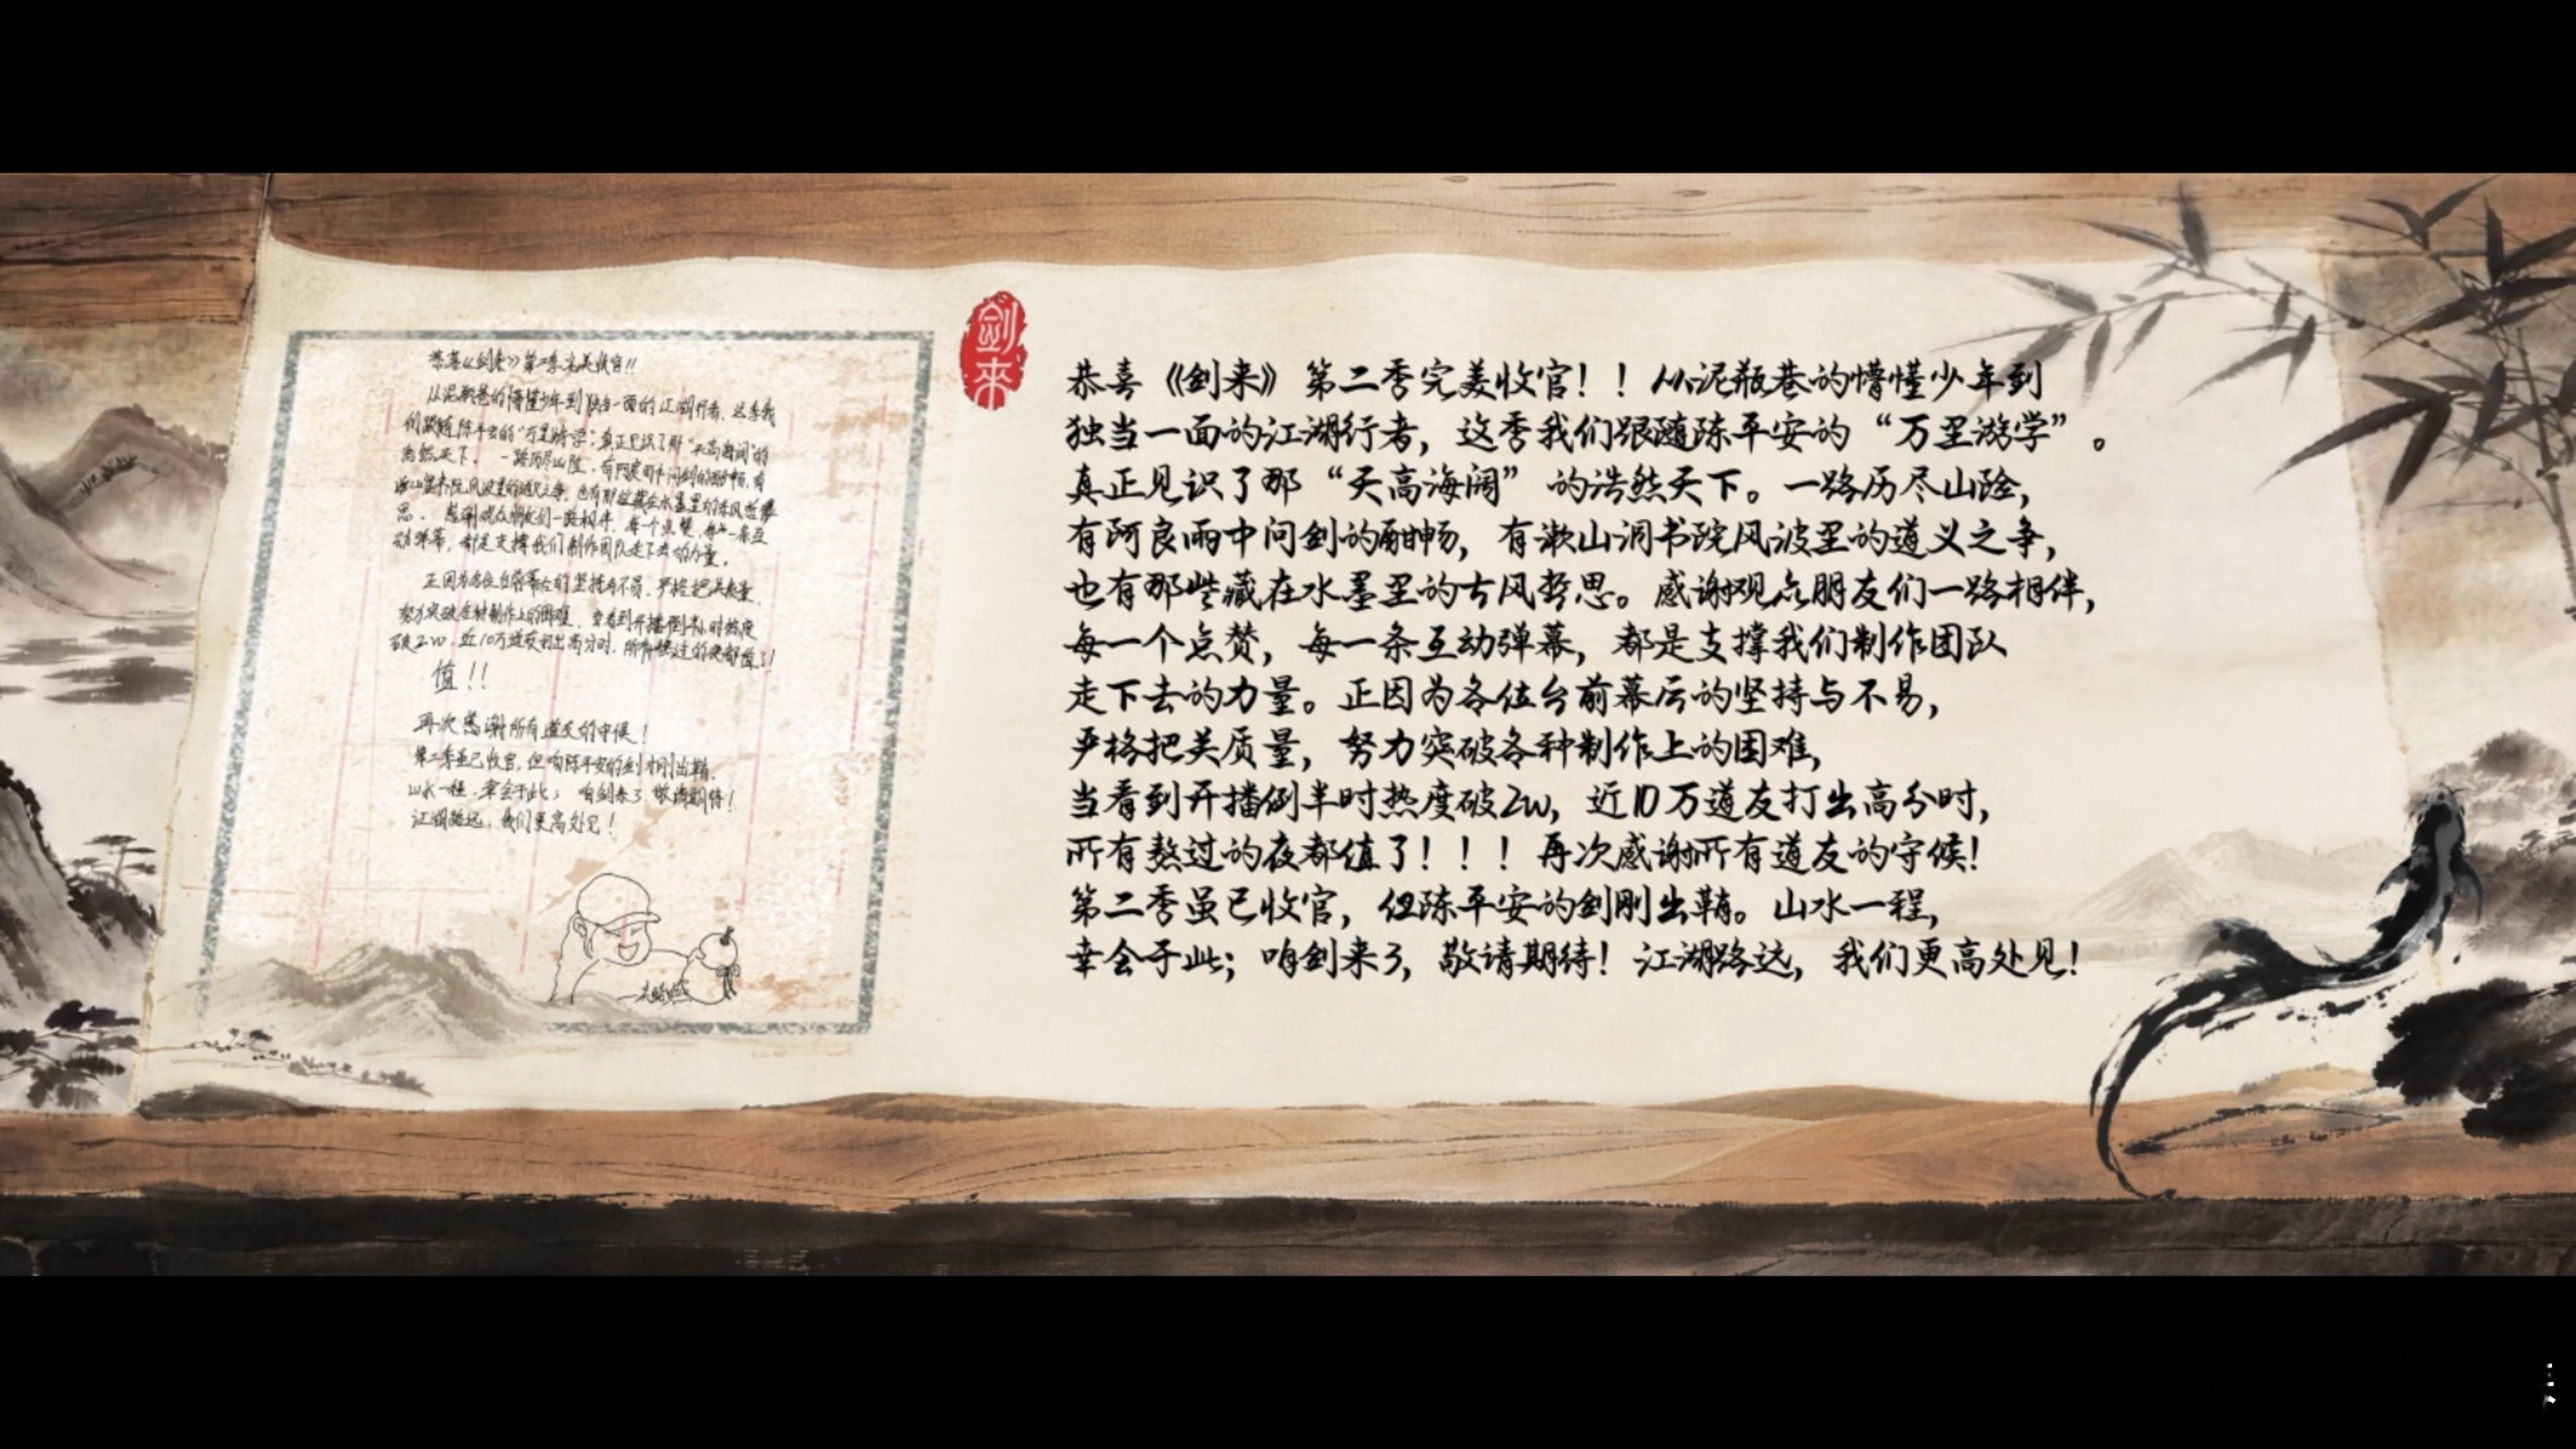 恭喜《剑来》第二季完美收官！！
从泥瓶巷的懵懂少年到独当一面的江湖行者，这季我
们跟随陈平安的“万里游学”。真正见识了那“天高海阔”的
浩然天下。一路历尽山险，有阿良雨中问剑的酣畅，有
思。感谢观众朋友们一路相伴，每一个点赞，每一条互
动弹幕，都是支撑我们制作团队走下去的力量。
正因为各位台前幕后的坚持与不易，严格把关质量，
值！！
再次感谢所有道友的守候！
江湖路远，我们更高处见！
剑来
恭喜《剑来》第二季完美收官！！从泥瓶巷的懵懂少年到
独当一面的江湖行者，这季我们跟随陈平安的“万里游学”。
真正见识了那“天高海阔”的浩然天下。一路历尽山险，
有阿良雨中问剑的酣畅，有漱山洞书院风波里的道义之争，
也有那些藏在水墨里的古风哲思。感谢观众朋友们一路相伴，
每一个点赞，每一条互动弹幕，都是支撑我们制作团队
走下去的力量。正因为各位台前幕后的坚持与不易，
严格把关质量，努力突破各种制作上的困难，
当看到开播倒半时热度破2w，近10万道友打出高分时，
所有熬过的夜都值了！！！再次感谢所有道友的守候！
第二季虽已收官，但陈平安的剑刚出鞘。山水一程，
幸会于此；咱剑来3，敬请期待！江湖路远，我们更高处见！